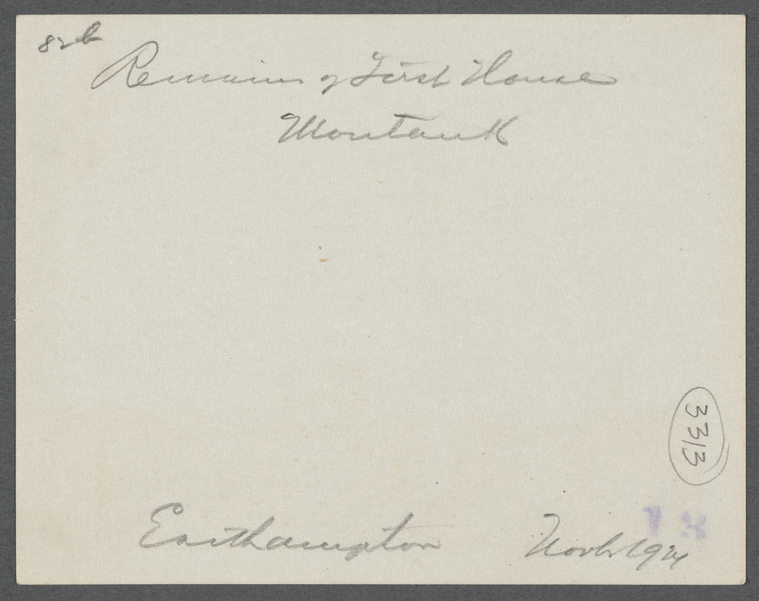 82b
Remains of First House
Montauk
3313
Easthampton Novbr 1924